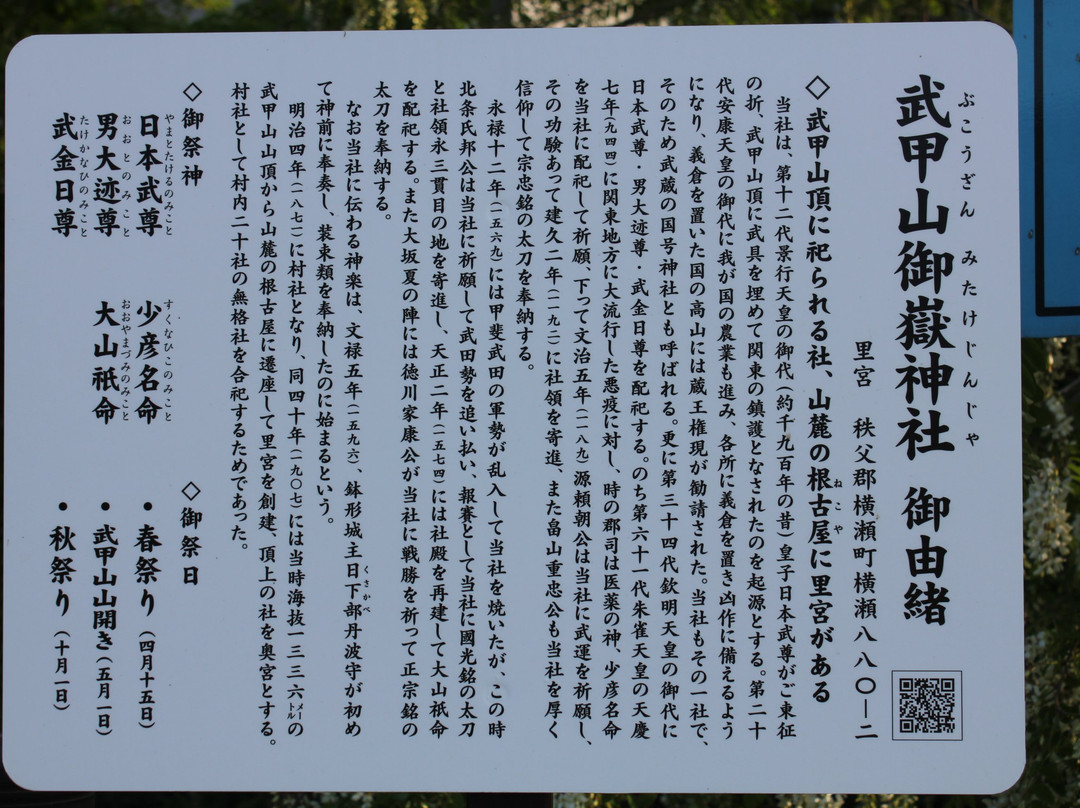 武甲山御嶽神社 御由緒
ぶこうざん みたけじんじゃ
里宮 秩父郡横瀬町横瀬八八〇ー二
◇武甲山頂に祀られる社、山麓の根古屋に里宮がある
ねこや
当社は、第十二代景行天皇の御代(約千九百年の昔)皇子日本武尊がご東征
の折、武甲山頂に武具を埋めて関東の鎮護となされたのを起源とする。第二十
代安康天皇の御代に我が国の農業も進み、各所に義倉を置き凶作に備えるよう
になり、義倉を置いた国の高山には蔵王権現が勧請された。当社もその一社で、
そのため武蔵の国号神社とも呼ばれる。更に第三十四代欽明天皇の御代に
日本武尊・男大迹尊・武金日尊を配祀する。のち第六十一代朱雀天皇の天慶
七年(九四四)に関東地方に大流行した悪疫に対し、時の郡司は医薬の神、少彦名命
を当社に配祀して祈願、下って文治五年(一一八九)源頼朝公は当社に武運を祈願し、
その功験あって建久二年(一一九二)に社領を寄進、また畠山重忠公も当社を厚く
信仰して宗忠銘の太刀を奉納する。
永禄十二年(一五六九)には甲斐武田の軍勢が乱入して当社を焼いたが、この時
北条氏邦公は当社に祈願して武田勢を追い払い、報賽として当社に國光銘の太刀
と社領永三貫目の地を寄進し、天正二年(一五七四)には社殿を再建して大山祇命
を配祀する。また大坂夏の陣には徳川家康公が当社に戦勝を祈って正宗銘の
太刀を奉納する。
なお当社に伝わる神楽は、文禄五年(一五九六)、鉢形城主日下部丹波守が初め
くさかべ
て神前に奉奏し、装束類を奉納したのに始まるという。
明治四年(一八七一)に村社となり、同四十年(一九〇七)には当時海抜一三三六メートルの
武甲山山頂から山麓の根古屋に遷座して里宮を創建、頂上の社を奥宮とする。
村社として村内二十社の無格社を合祀するためであった。
◇御祭神
日本武尊 少彦名命
やまとたけるのみこと すくなひこのみこと
男大迹尊 大山祇命
おおとのみこと おおやまづみのみこと
武金日尊
たけかなひのみこと
◇御祭日
・春祭り(四月十五日)
・武甲山山開き(五月一日)
・秋祭り(十月一日)